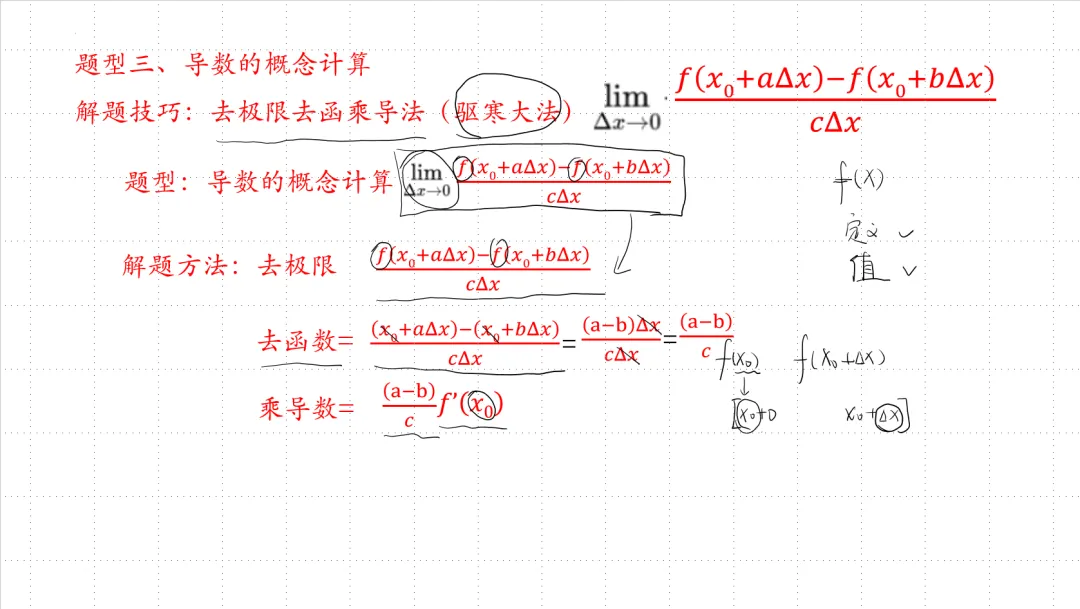 题型三、导数的概念计算
解题技巧：去极限去函乘导法（驱寒大法） lim Δx→0 f(x₀+aΔx)−f(x₀+bΔx) / cΔx
题型：导数的概念计算 lim Δx→0 f(x₀+aΔx)−f(x₀+bΔx) / cΔx
f(x)
定义 ✓
值 ✓
解题方法：去极限 f(x₀+aΔx)−f(x₀+bΔx) / cΔx
去函数= (x₀+aΔx)−(x₀+bΔx) / cΔx = (a−b)Δx / cΔx = (a−b) / c
f(x₀) f(x₀+Δx)
乘导数= (a−b) / c f’(x₀)
[x₀+0 x₀+Δx]